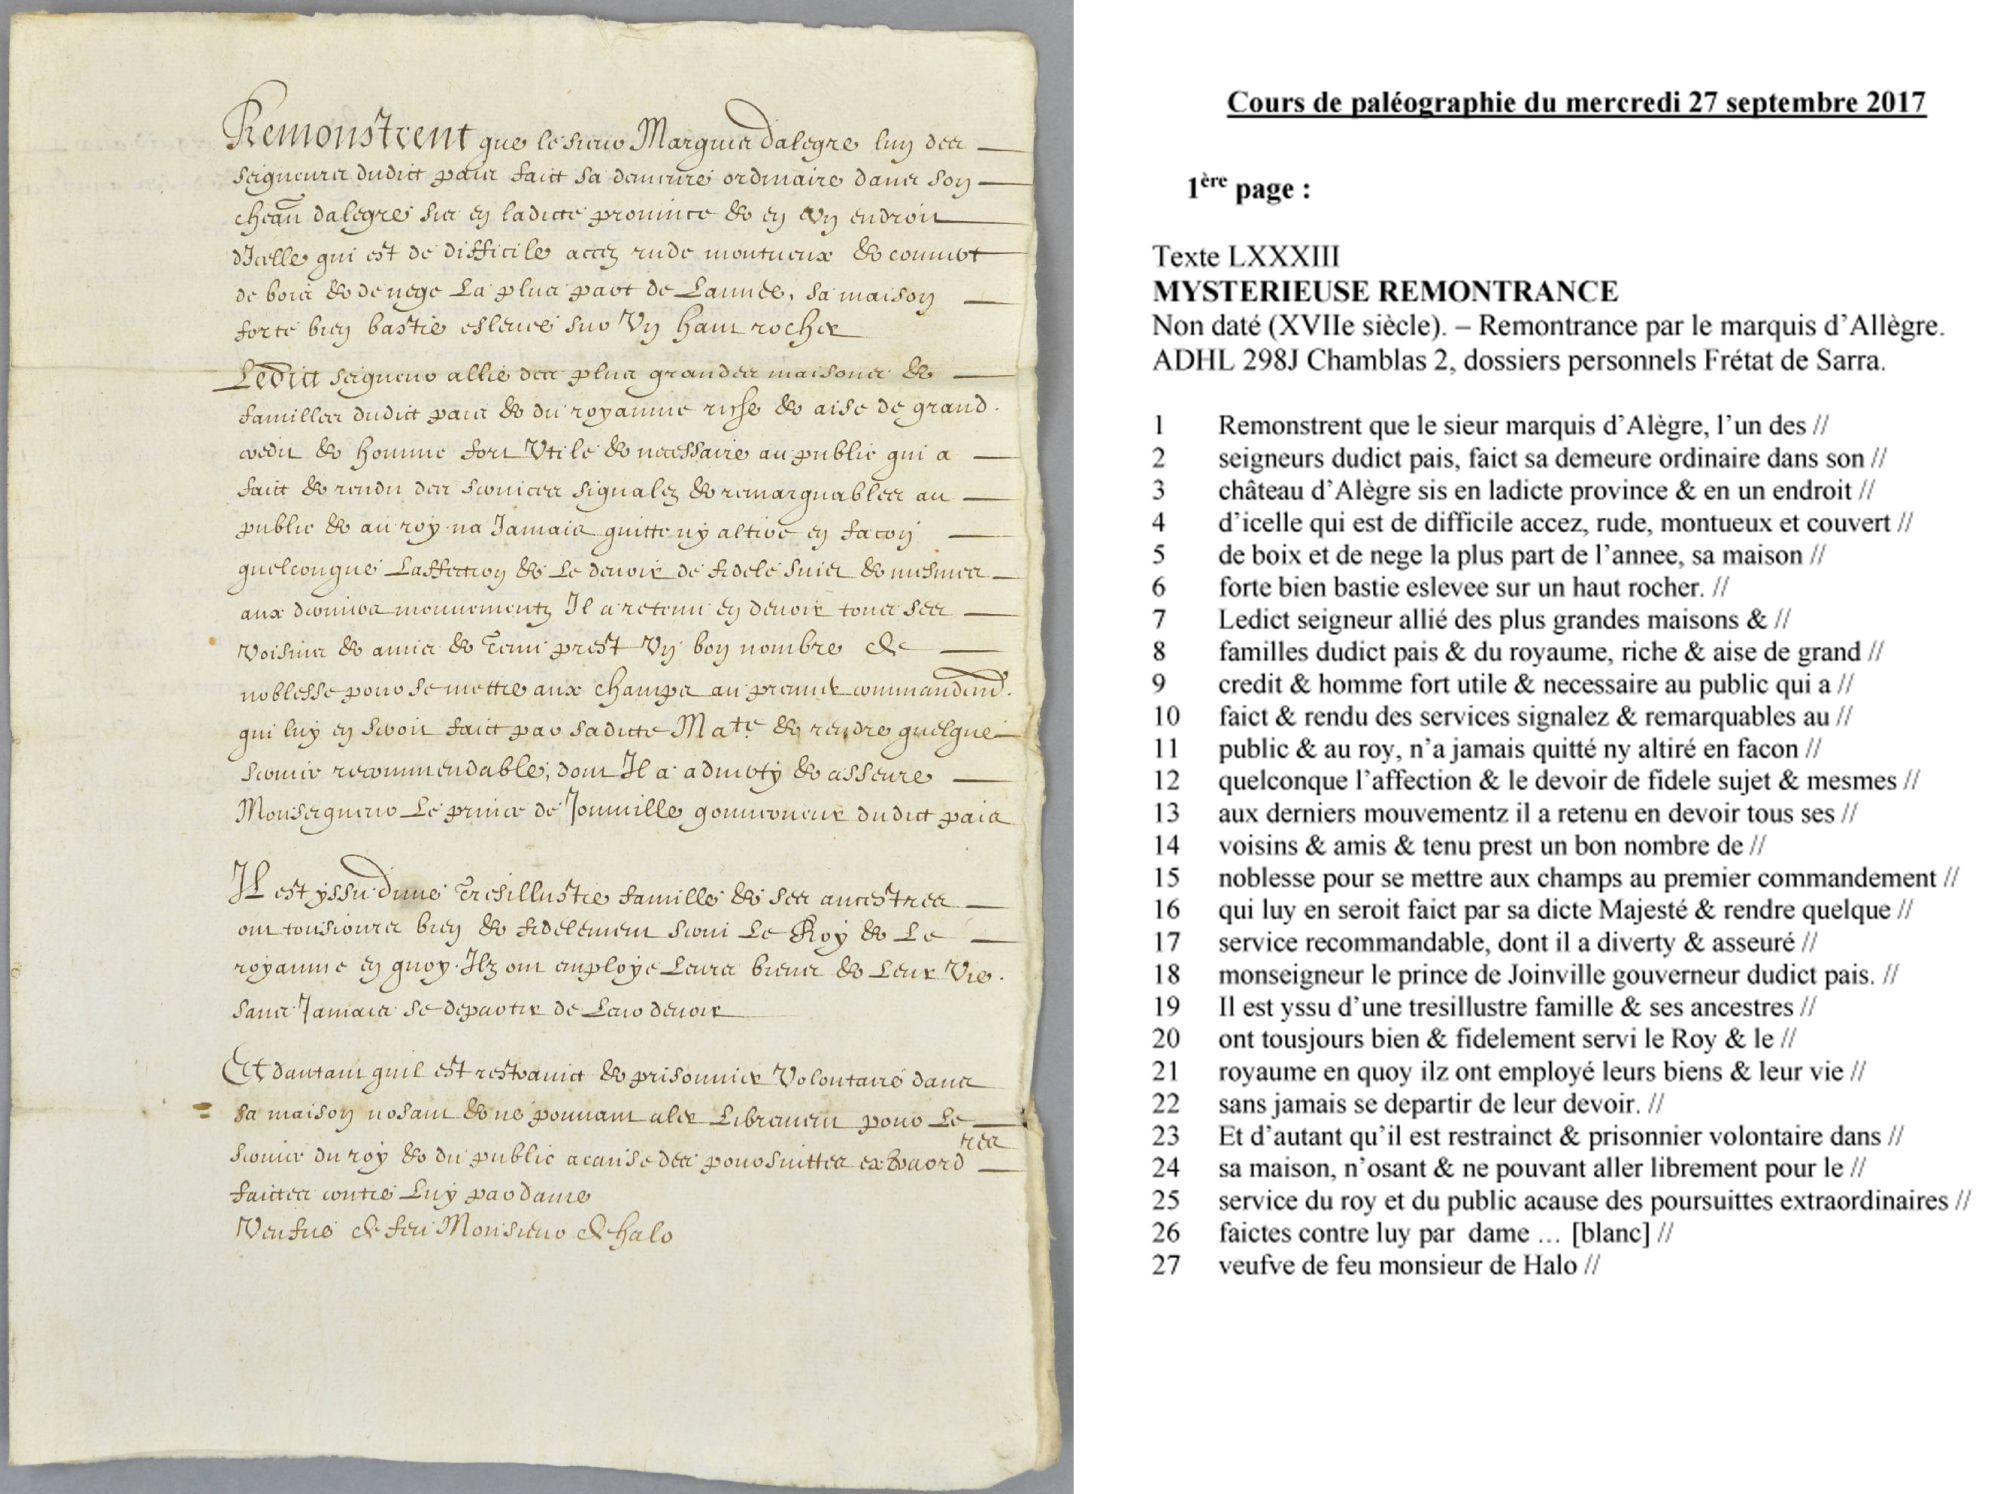 Remonstrent que le sieur Marquis dalegre lun des
seigneurs dudict pais faict sa demeure ordinaire dans son
cheau dalegre sis en ladicte province & en Vn endroit
dIcelle qui est de difficile accez rude montueux & couvert
de bois & de nege La plus part de Lannee, sa maison
forte bien bastie eslevee sur Vn haut rocher
Ledict seigneur allie des plus grandes maisons &
familles dudict pais & du royaume riche & aise de grand
credit & homme fort Vtile & necessaire au public qui a
faict & rendu des services signalez & remarquables au
public & au roy na Jamais quitte ny altere en facon
quelconque Laffection & Le devoir de fidele suiet & mesmes
aux derniers mouvementz Il a retenu en devoir tous ses
Voisins & amis & Tenu prest Vn bon nombre de
noblesse pour se mettre aux champs au premier commandemt.
qui luy en seroit faict par sadicte Mate & rendre quelque
service recommendable, dont Il a adverty & asseure
Monseigneur Le prince de Joinville gouverneur dudict pais
Il est yssu dune Tresillustre famille & ses ancestres
ont tousiours bien & fidelement servi Le Roy & Le
royaume en quoy Ilz ont employe Leurs biens & Leur Vie.
sans Jamais se departir de Leur devoir
Et dautant quil est restrainct & prisonnier Volontaire dans
sa maison nosant & ne pouvant aler Librement pour Le
service du roy & du public acause des poursuittes extraordres
faictes contre Luy par dame
Veufve de feu Monsieur de halo
Cours de paléographie du mercredi 27 septembre 2017
1ère page :
Texte LXXXIII
MYSTERIEUSE REMONTRANCE
Non daté (XVIIe siècle). – Remontrance par le marquis d’Allègre.
ADHL 298J Chamblas 2, dossiers personnels Frétat de Sarra.
1 Remonstrent que le sieur marquis d’Alègre, l’un des //
2 seigneurs dudict pais, faict sa demeure ordinaire dans son //
3 château d’Alègre sis en ladicte province & en un endroit //
4 d’icelle qui est de difficile accez, rude, montueux et couvert //
5 de boix et de nege la plus part de l’annee, sa maison //
6 forte bien bastie eslevee sur un haut rocher. //
7 Ledict seigneur allié des plus grandes maisons & //
8 familles dudict pais & du royaume, riche & aise de grand //
9 credit & homme fort utile & necessaire au public qui a //
10 faict & rendu des services signalez & remarquables au //
11 public & au roy, n’a jamais quitté ny altiré en facon //
12 quelconque l’affection & le devoir de fidele sujet & mesmes //
13 aux derniers mouvementz il a retenu en devoir tous ses //
14 voisins & amis & tenu prest un bon nombre de //
15 noblesse pour se mettre aux champs au premier commandement //
16 qui luy en seroit faict par sa dicte Majesté & rendre quelque //
17 service recommandable, dont il a diverty & asseuré //
18 monseigneur le prince de Joinville gouverneur dudict pais. //
19 Il est yssu d’une tresillustre famille & ses ancestres //
20 ont tousjours bien & fidelement servi le Roy & le //
21 royaume en quoy ilz ont employé leurs biens & leur vie //
22 sans jamais se departir de leur devoir. //
23 Et d’autant qu’il est restrainct & prisonnier volontaire dans //
24 sa maison, n’osant & ne pouvant aller librement pour le //
25 service du roy et du public acause des poursuittes extraordinaires //
26 faictes contre luy par dame … [blanc] //
27 veufve de feu monsieur de Halo //